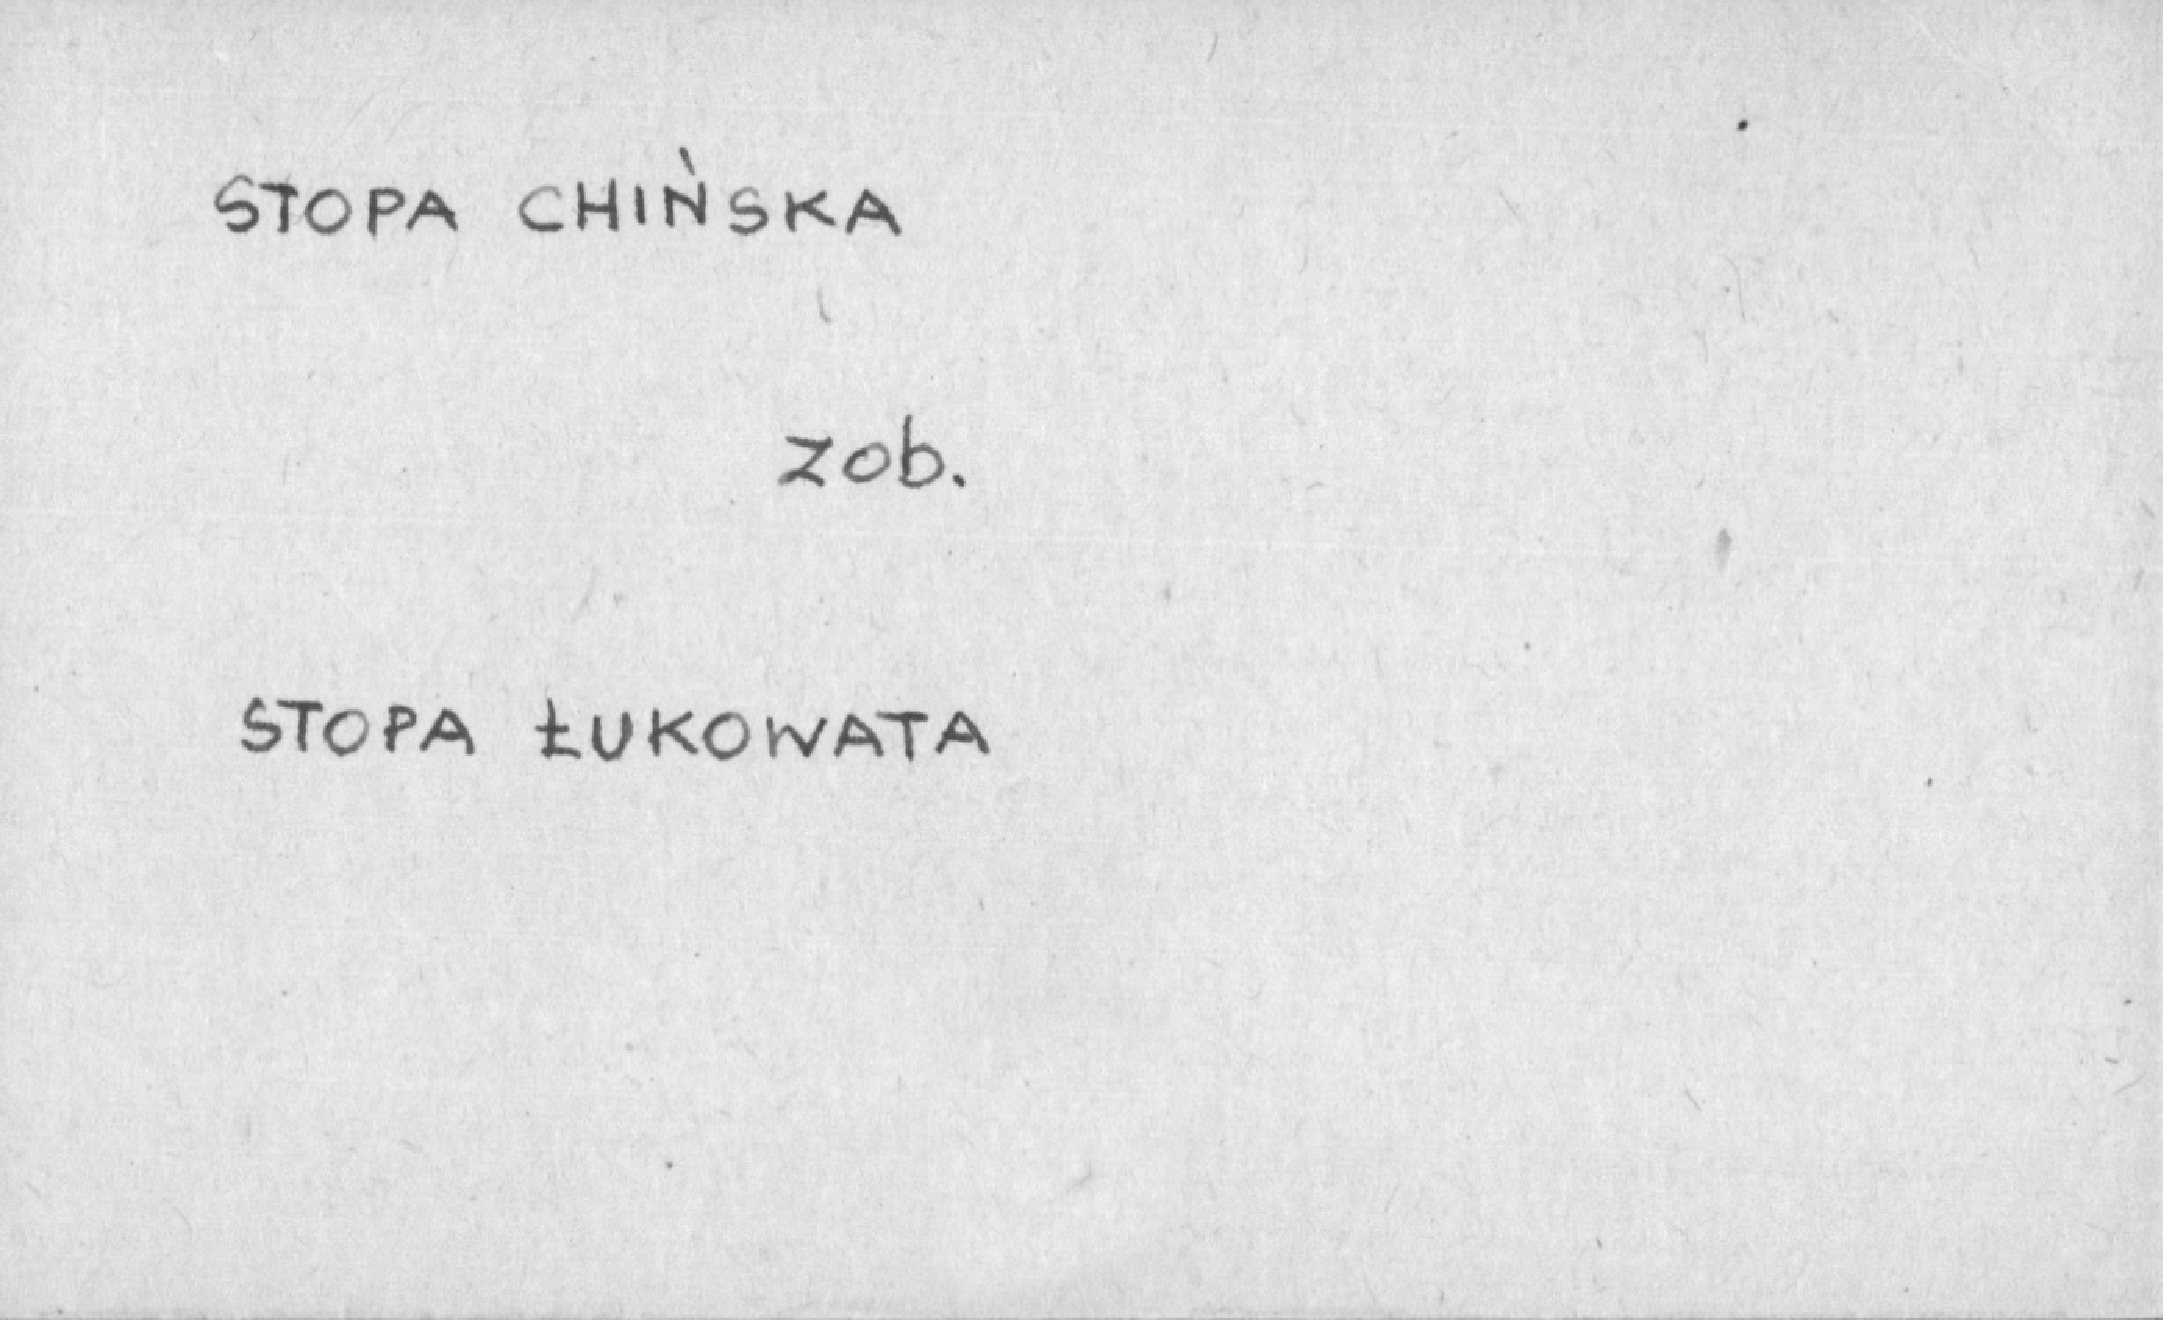 STOPA CHIŃSKA
zob.
STOPA ŁUKOWATA